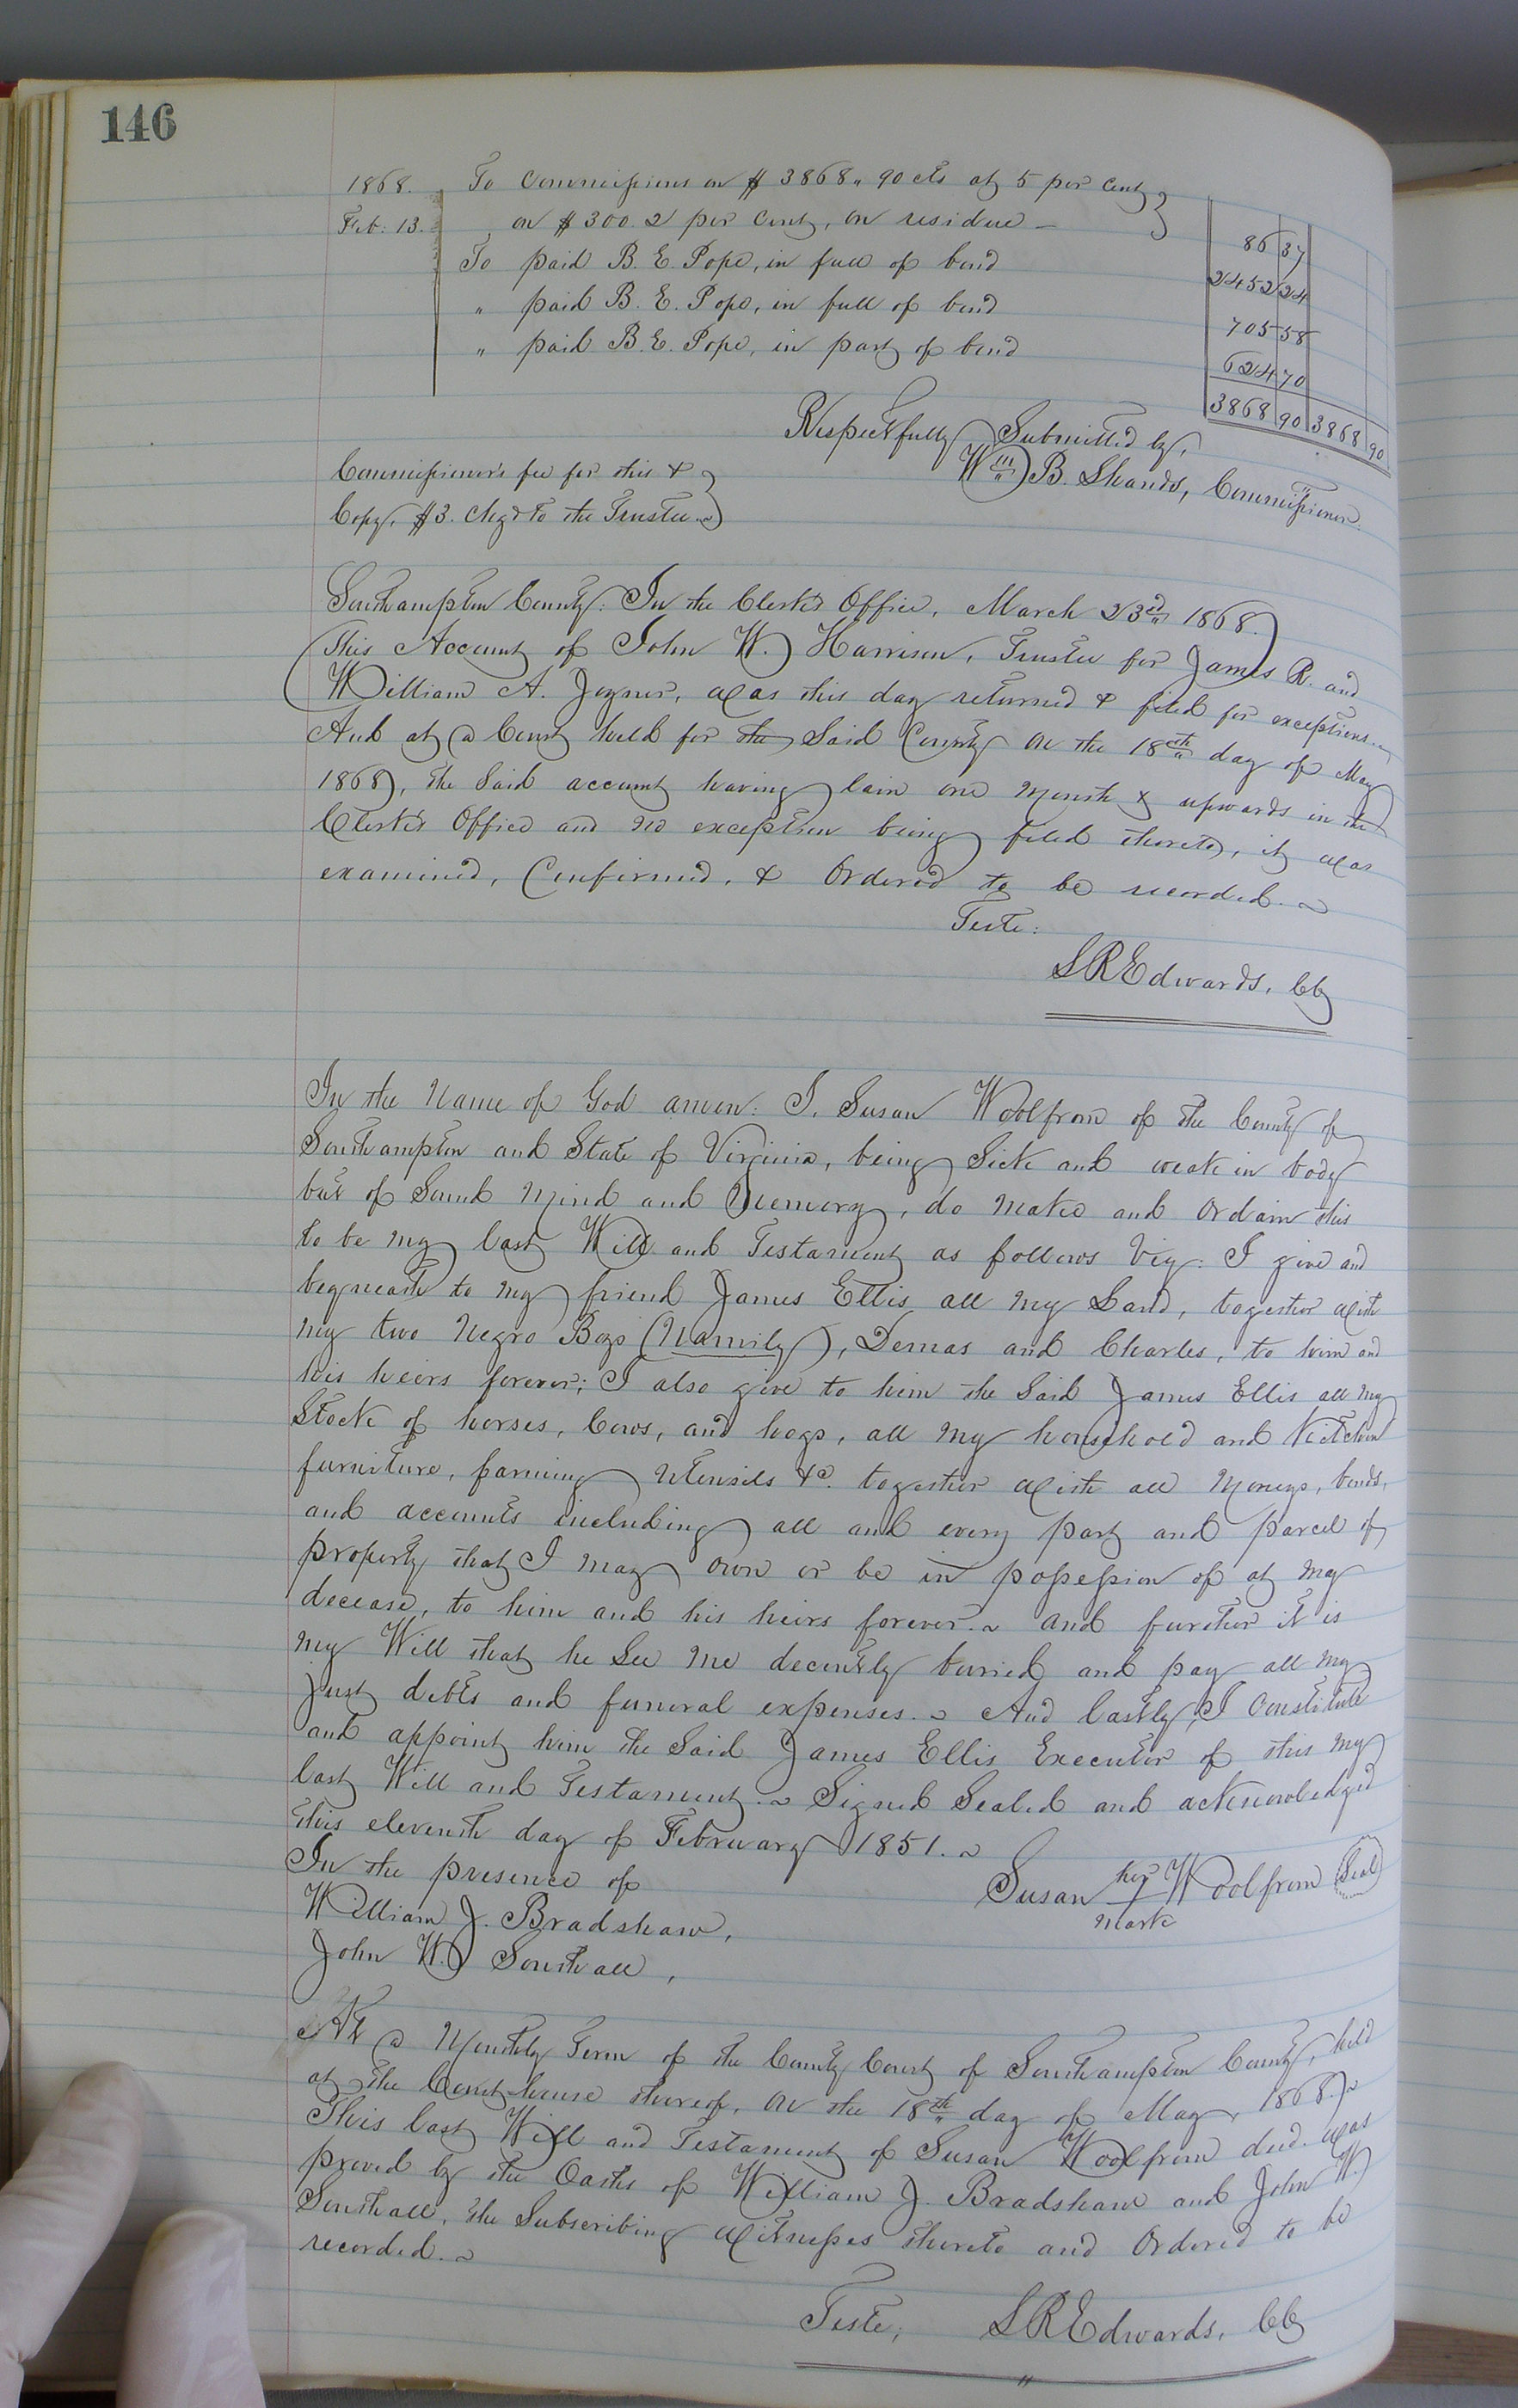 146
1868. To Commissions on $ 3868„ 90 cts at 5 per cent
Feb: 13. on $ 300. 2 per cent, on residue — 86 37
To paid B. E. Pope, in full of bond 2452 24
„ paid B. E. Pope, in full of bond 705 58
„ paid B. E. Pope, in part of bond 624 70
3868 90 3868 90
Respectfully Submitted by,
Wm B. Shands, Commissioner.
Commissioner's fee for this &
Copy, $3. chgd to the Trustee.
Southampton County: In the Clerk's Office, March 23rd 1868.
This Account of John W. Harrison, Trustee for James R. and
William A. Joyner, was this day returned & filed for exceptions.
And at a Court held for the Said County on the 18th day of May
1868, the Said account having lain one Month & upwards in the
Clerk's Office and no exception being filed thereto, it was
examined, Confirmed, & Ordered to be recorded.
Teste:
LREdwards, CC
In the Name of God amen: I, Susan Woolfrom of the County of
Southampton and State of Virginia, being Sick and weak in body
but of Sound Mind and Memory, do Make and Ordain this
to be my last Will and Testament as follows Viz: I give and
bequeath to my friend James Ellis all my Land, together with
my two Negro Boys (Namily), Demas and Charles, to him and
his heirs forever; I also give to him the Said James Ellis all my
Stock of horses, Cows, and hogs, all my household and Kitchen
furniture, farming Utensils &c. together with all Moneys, bonds,
and accounts including all and every part and parcel of
property that I may own or be in possession of at my
decease, to him and his heirs forever. and further it is
my Will that he See me decently buried and pay all my
Just debts and funeral expenses. And lastly, I Constitute
and appoint him the Said James Ellis Executor of this my
last Will and Testament. Signed Sealed and acknowledged
this eleventh day of February 1851.
In the presence of Susan her + mark Woolfrom Seal
William J. Bradshaw,
John W. Southall,
At a Monthly Term of the County Court of Southampton County, held
at the Court house thereof, on the 18th day of May, 1868.
This last Will and Testament of Susan Woolfrom decd. was
proved by the Oaths of William J. Bradshaw and John W.
Southall, the Subscribing Witnesses thereto and Ordered to be
recorded.
Teste, LREdwards, CC